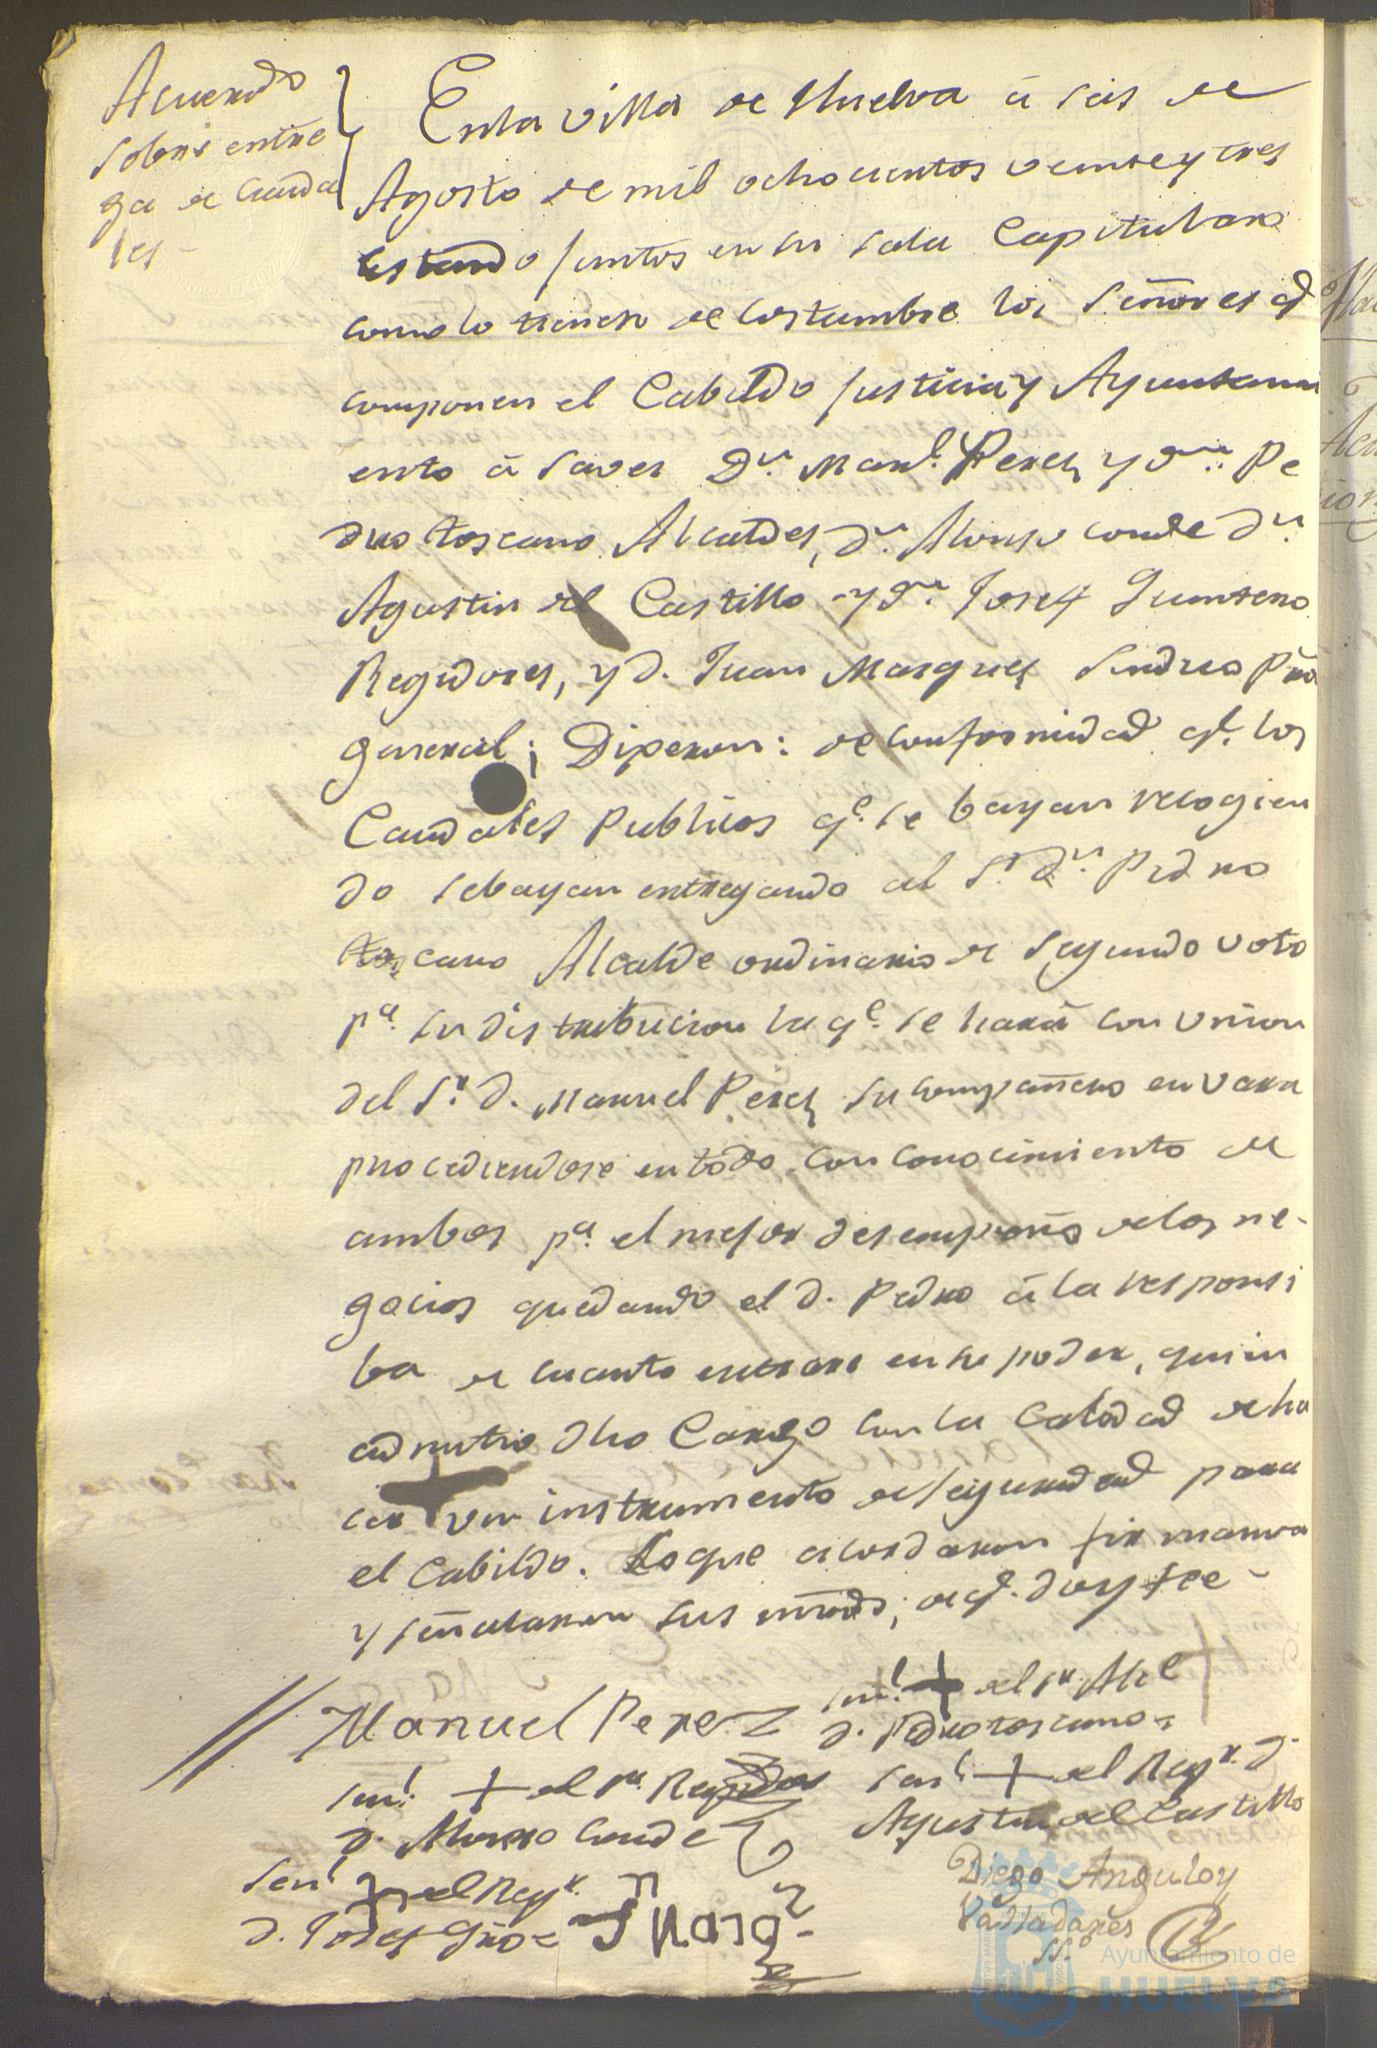 Acuerdo
sobre entre
ga de Cauda
les
En la villa de Huelva à seis de
Agosto de mil ochocientos veinte y tres
estando juntos en su sala Capitular
como lo tienen de costumbre los Señores q
componen el Cabildo Justicia y Ayuntami
ento à saver Dn. Manl. Perez y Dn. Pe
dro toscano Alcaldes, Dn. Alonso conde Dn
Agustin del Castillo y Dn. Josef Quintero
Regidores, y D. Juan Marquez Sindico Pro
general; Diperon: de conformidad qe. los
Caudales Publicos qe. se bayan recogien
do se bayan entregando al Sr. Dn. Pedro
toscano Alcalde ordinario de segundo voto
pa. su distribucion la qe. se hará con union
del Sr. D. Manuel Perez su compañero en vara
procediendose en todo con conocimiento de
ambos pa. el mejor desempeño de los ne-
gocios quedando el D. Pedro à la responsi
ba de cuanto entrare en su poder, quien
admitio dho Cargo con la Calidad de ha
cer un instrumento de seguridad para
el Cabildo. Lo que acordaron firmaron
y señalaron sus mrds; de qe. doy fee-
Manuel Perez
señl. + del Sr. Alce
D. Pedro toscano=
señl. + del Sr. Regidor
D. Alonso Conde
señl. + del Regr. D.
Agustin del Castillo
señl del Regr.
D. Josef Qro=
Jn Marqz
Diego Angulo y
Valladares
SSº
Ayuntamiento de
HUELVA